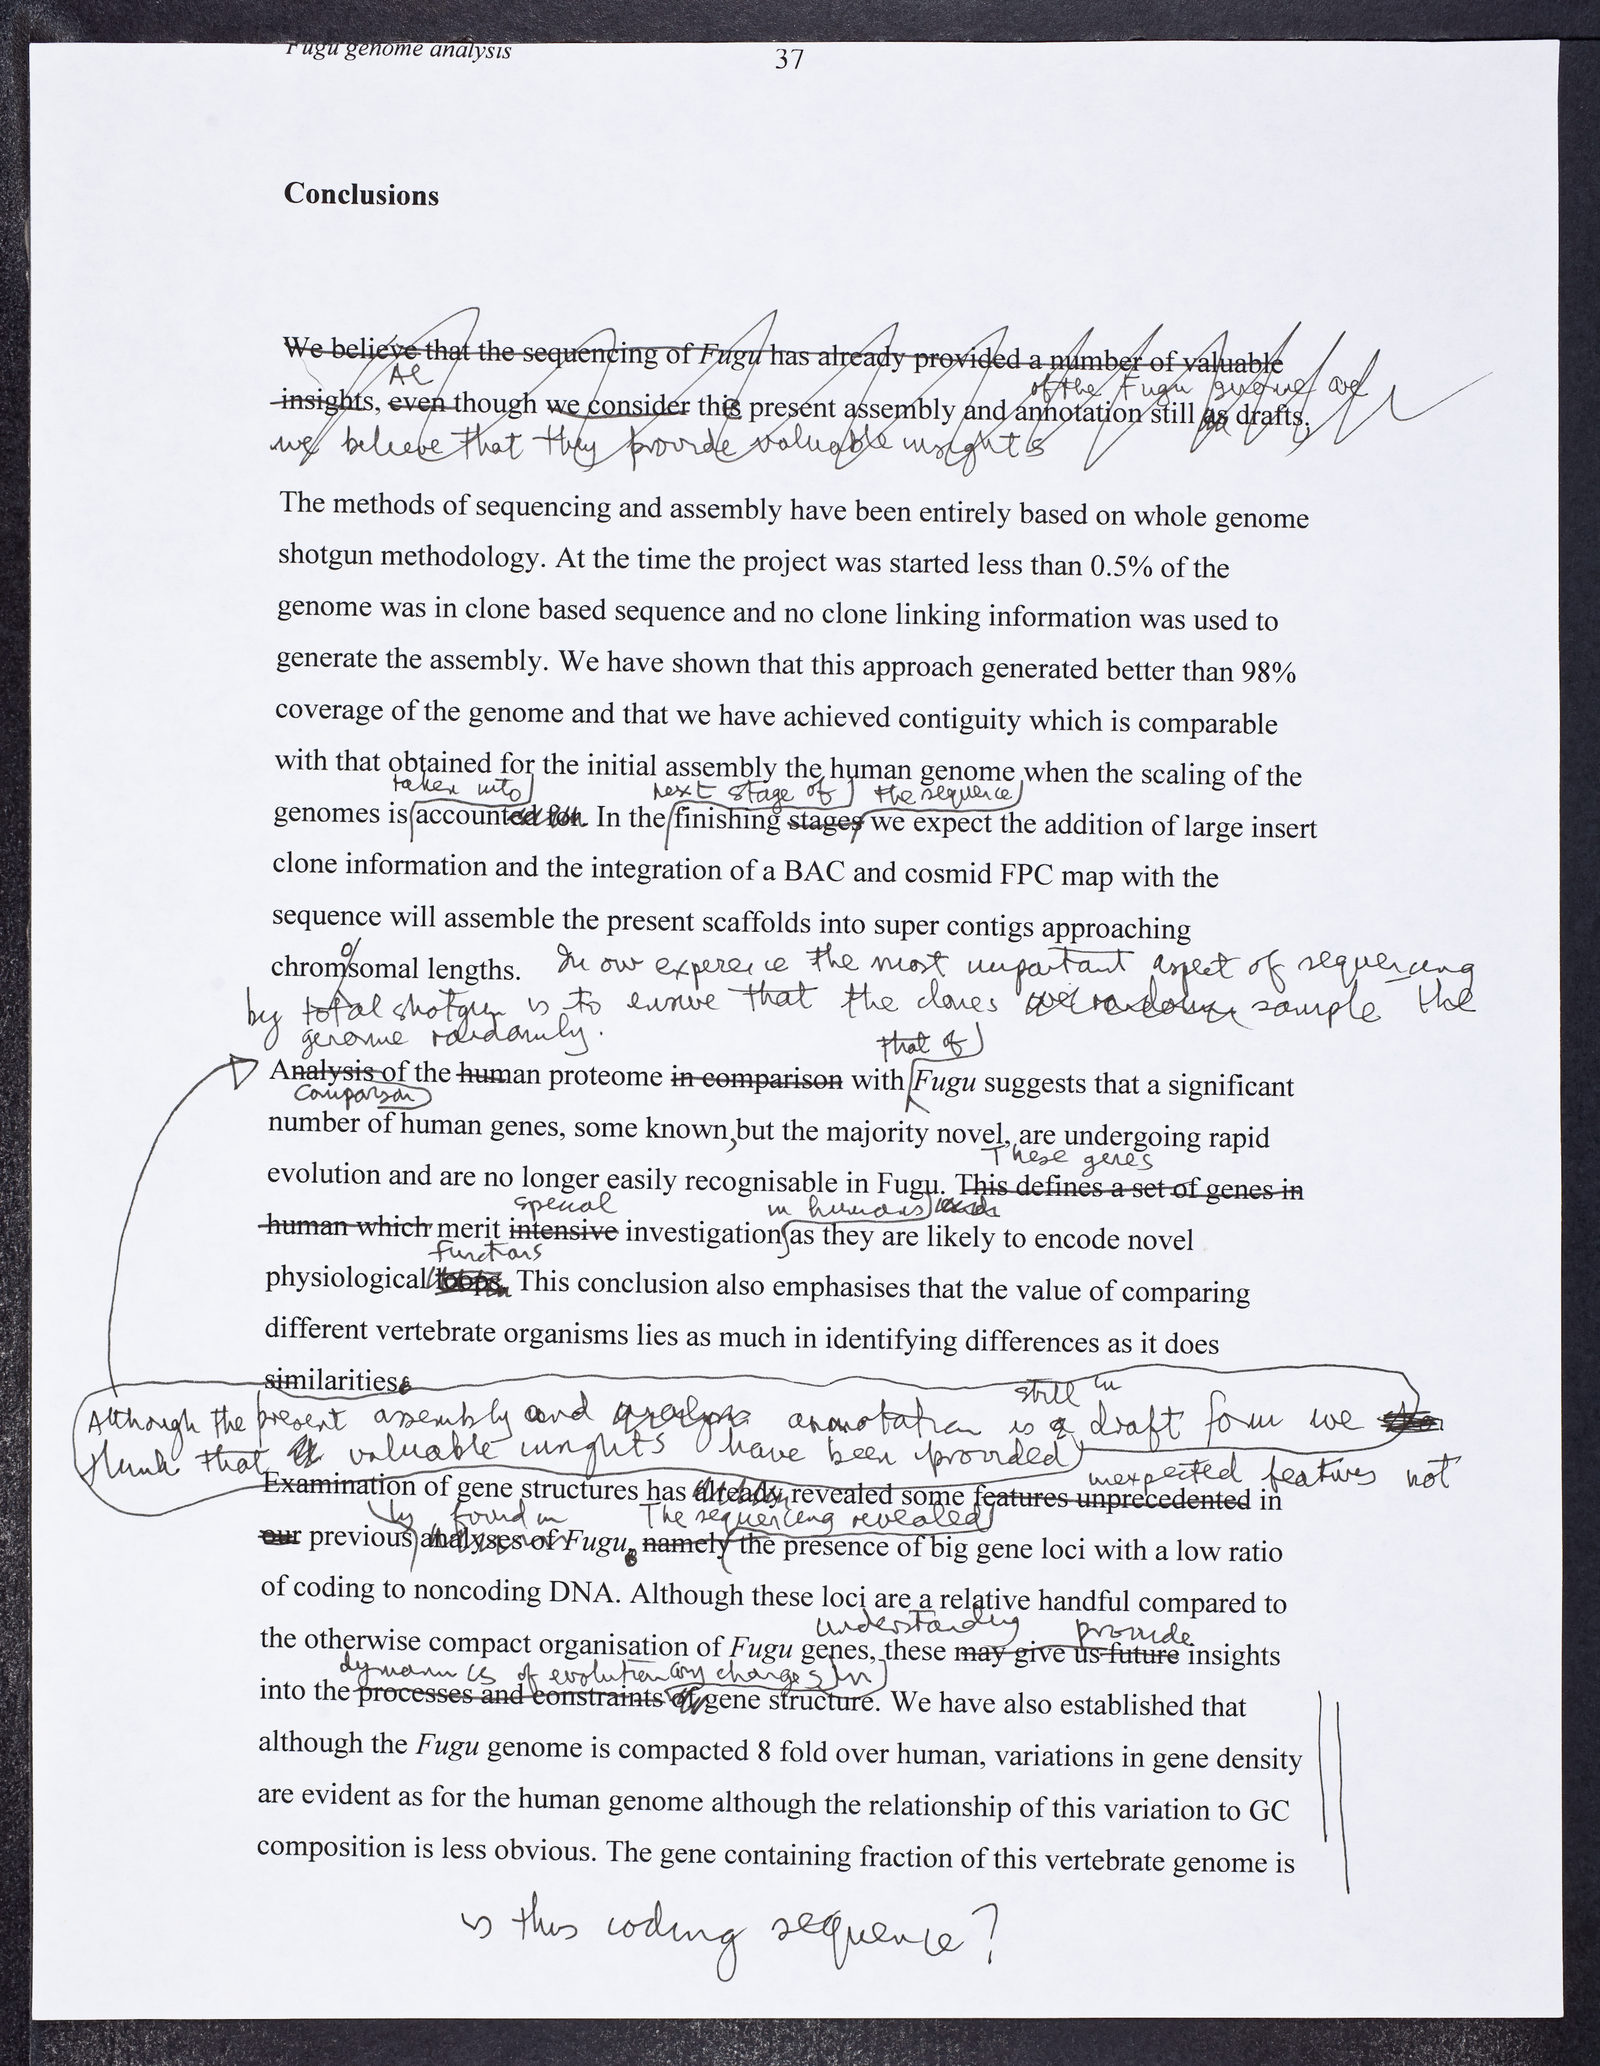 Fugu genome analysis
37
Conclusions
We believe that the sequencing of Fugu has already provided a number of valuable
Al
of the Fugu genome are
insights, even though we consider this present assembly and annotation still as drafts,
we believe that they provide valuable insights
The methods of sequencing and assembly have been entirely based on whole genome
shotgun methodology. At the time the project was started less than 0.5% of the
genome was in clone based sequence and no clone linking information was used to
generate the assembly. We have shown that this approach generated better than 98%
coverage of the genome and that we have achieved contiguity which is comparable
with that obtained for the initial assembly the human genome when the scaling of the
taken into next stage of the sequence
genomes is accounted for. In the finishing stages we expect the addition of large insert
clone information and the integration of a BAC and cosmid FPC map with the
sequence will assemble the present scaffolds into super contigs approaching
o
chromsomal lengths. In our experence the most important aspect of sequencing
by total shotgun is to ensure that the clones are random sample the
genome randomly.
that of
Analysis of the human proteome in comparison with Fugu suggests that a significant
Comparison
number of human genes, some known, but the majority novel, are undergoing rapid
These genes
evolution and are no longer easily recognisable in Fugu. This defines a set of genes in
special in humans
human which merit intensive investigation as they are likely to encode novel
functions
physiological loops. This conclusion also emphasises that the value of comparing
different vertebrate organisms lies as much in identifying differences as it does
similarities.
still in
Although the present assembly and annotation is a draft form we
think that valuable insights have been provided
unexpected features not
Examination of gene structures has already revealed some features unprecedented in
by found in The sequencing revealed
our previous analyses of Fugu, namely the presence of big gene loci with a low ratio
of coding to noncoding DNA. Although these loci are a relative handful compared to
understanding provide
the otherwise compact organisation of Fugu genes, these may give us future insights
dynamics of evolutionary changes in
into the processes and constraints of gene structure. We have also established that
although the Fugu genome is compacted 8 fold over human, variations in gene density
are evident as for the human genome although the relationship of this variation to GC
composition is less obvious. The gene containing fraction of this vertebrate genome is
is this coding sequence?